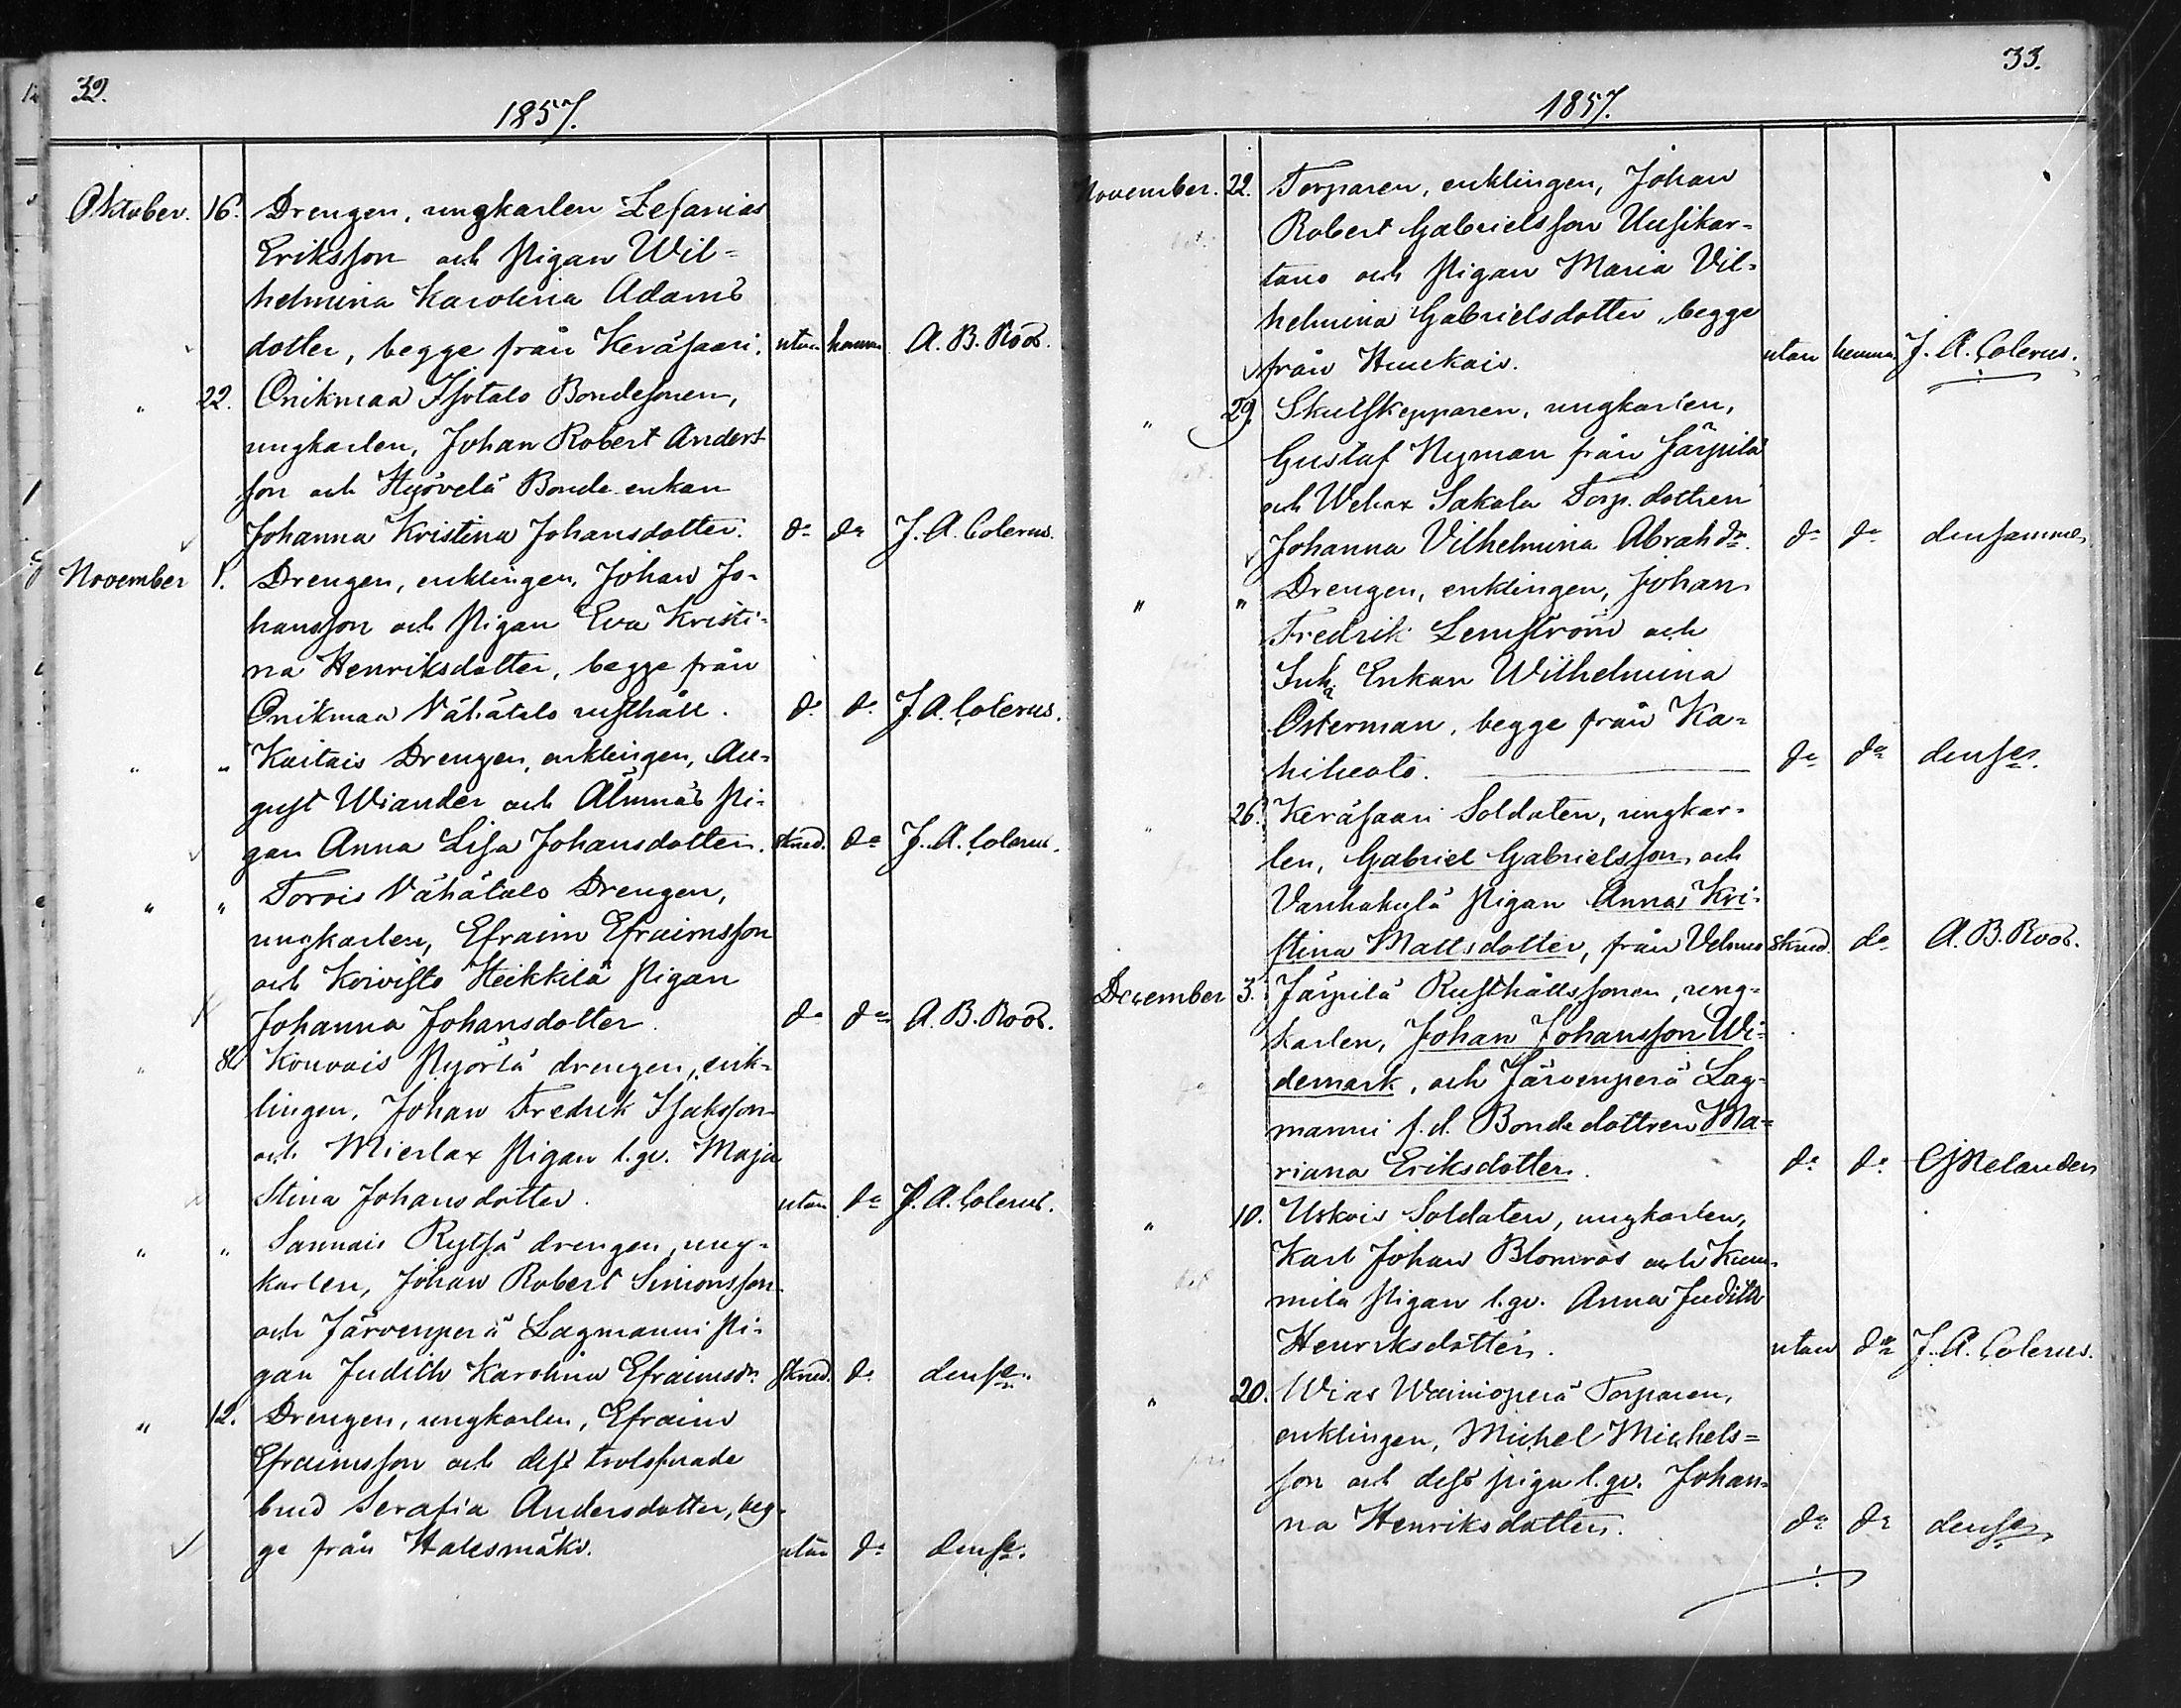 32.
1857.
Oktober. 16. Drengen, ungkarlen Zefanias
Eriksson och Pigan Wil=
helmina Karolina Adams
dotter, begge från Keräsaari. utan hemma A. B. Roos.
" 22. Onikmaa Isotalo Bondesonen,
ungkarlen, Johan Robert Anders
son och Hyövelä Bonde enkan
Johanna Kristina Johansdotter. do do J. A. Colerus.
November 1. Drengen, enklingen, Johan Jo=
hansson och Pigan Eva Kristi=
na Henriksdotter, begge från
Onikmaa Vähätalo rusthåll. do do J. A. Colerus.
" " Kaitais Drengen, enklingen, Au=
gust Wiander och Alsnäs Pi=
gan Anna Lisa Johansdotter. skrud. do J. A. Colerus.
" " Torois Vähätalo Drengen,
ungkarlen, Efraim Efraimsson
och Koivisto Heikkilä Pigan
Johanna Johansdotter. do do A. B. Roos.
" 8. Kouvois Pyörlä drengen, enk=
lingen, Johan Fredrik Isaksson
och Mierlax Pigan l.gv. Maja
Stina Johansdotter. utan do J. A. Colerus.
" " Sannais Rytsä drengen, ung=
karlen, Johan Robert Simonsson
och Järvenperä Lagmanni Pi=
gan Judith Karolina Efraimsdr. skrud. do dense.
" 12. Drengen, ungkarlen, Efraim
Efraimsson och dess trolofvade
brud Serafia Andersdotter, beg=
ge från Halesmäki. utan do dense.
33.
1857.
November. 22. Torparen, enklingen, Johan
Robert Gabrielsson Uusikar=
tano och Pigan Maria Vil=
helmina Gabrielsdotter, begge
från Huukais. utan hemma. J. A. Colerus.
" 29. Skutskepparen, ungkarlen,
Gustaf Nyman från Järpilä
och Wehax Sakala Torp. dottren
Johanna Vilhelmina Abrahdr. do do densamme
" " Drengen, enklingen, Johan
Fredrik Lemström och
Inh. Enkan Wilhelmina
Österman, begge från Ka=
hiluoto. do do dense.
" 26. Keräsaari Soldaten, ungkar=
len, Gabriel Gabrielsson, och
Vanhakylä Pigan Anna Kri=
stina Mattsdotter, från Velmo skrud. do A. B. Roos.
December 3. Järpilä Rusthållssonen, ung=
karlen, Johan Johansson Wi=
demark, och Järvenperä Lag=
manni f.d. Bondedottren Ma=
riana Eriksdotter. do do CJNelander
" 10. Uskois Soldaten, ungkarlen,
Karl Johan Blomros och Kum=
mila Pigan l.gv. Anna Judith
Henriksdotter. utan do J. A. Colerus.
" 20. Wias Wainioperä Torparen,
enklingen, Michel Michels=
son och dess piga l.gv. Johan=
na Henriksdotter. do do dense